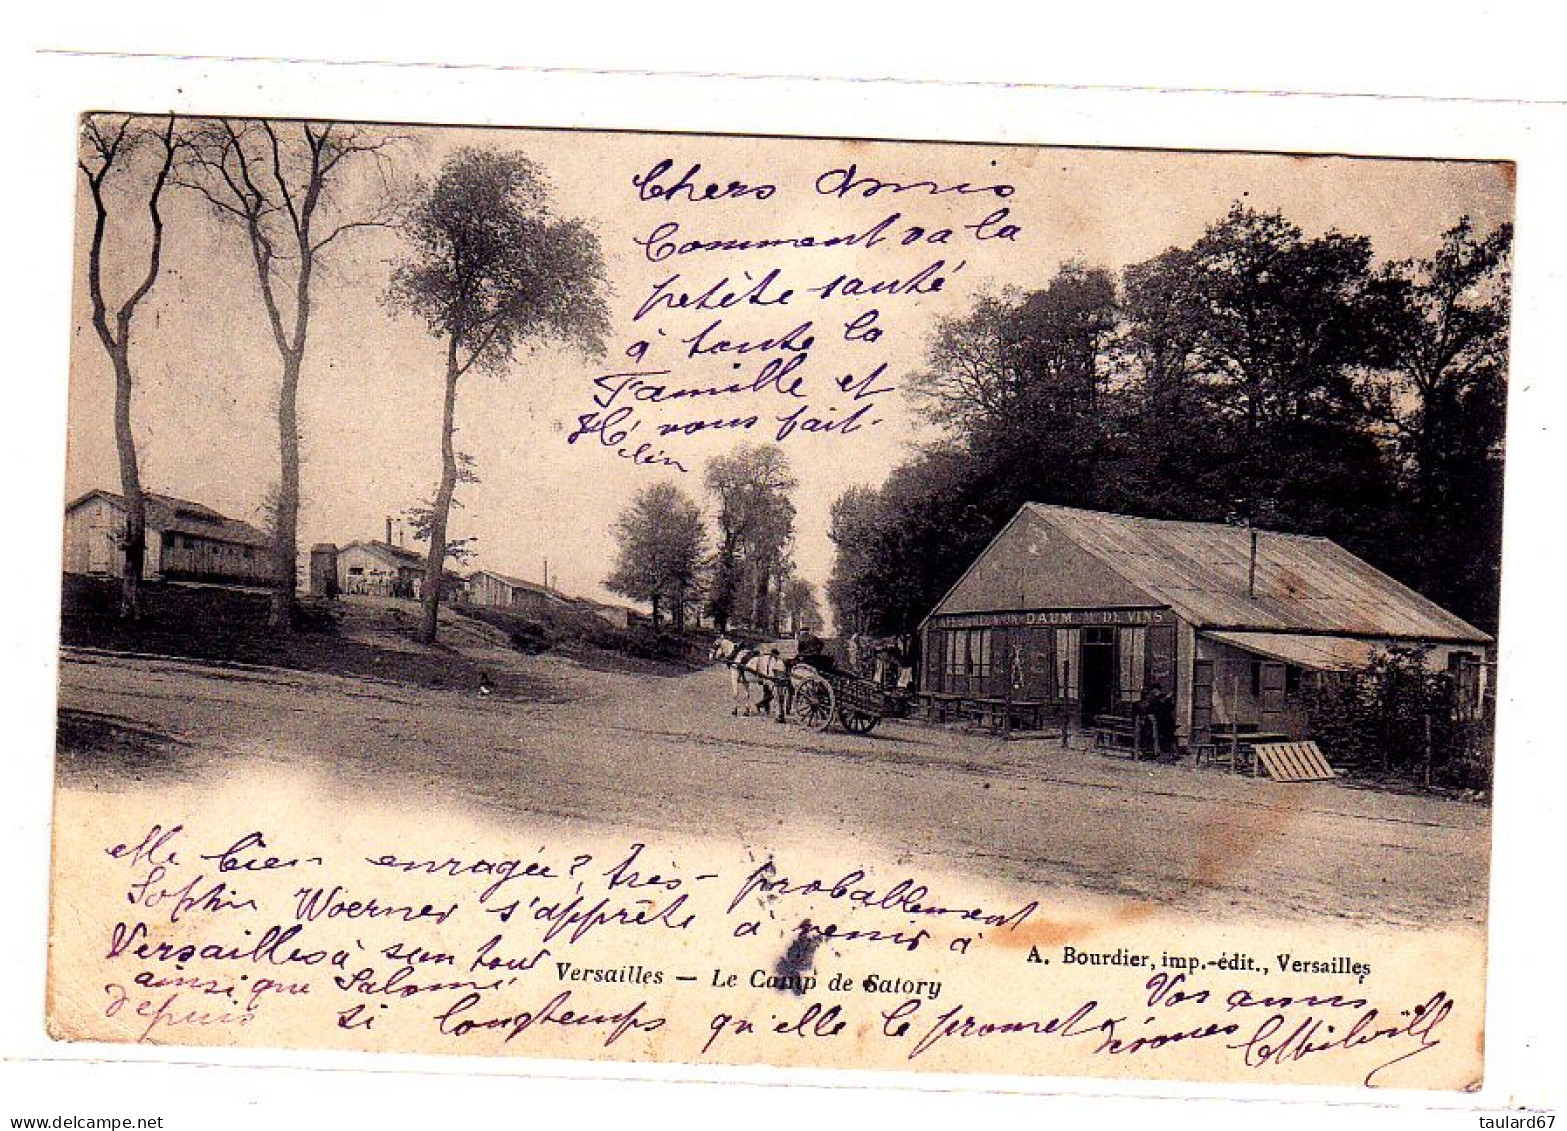 Chers Amis
Comment va la
petite santé
à toute la
Famille et
Hé vous fait-
elle bien enragée? très-probablement
Sophie Woerner s'apprête à venir à
Versailles à son tour
ainsi que Salomé
depuis si longtemps qu'elle le promet
Vos amis
DAUM
Versailles — Le Camp de Satory
A. Bourdier, imp.-édit., Versailles
taulard67